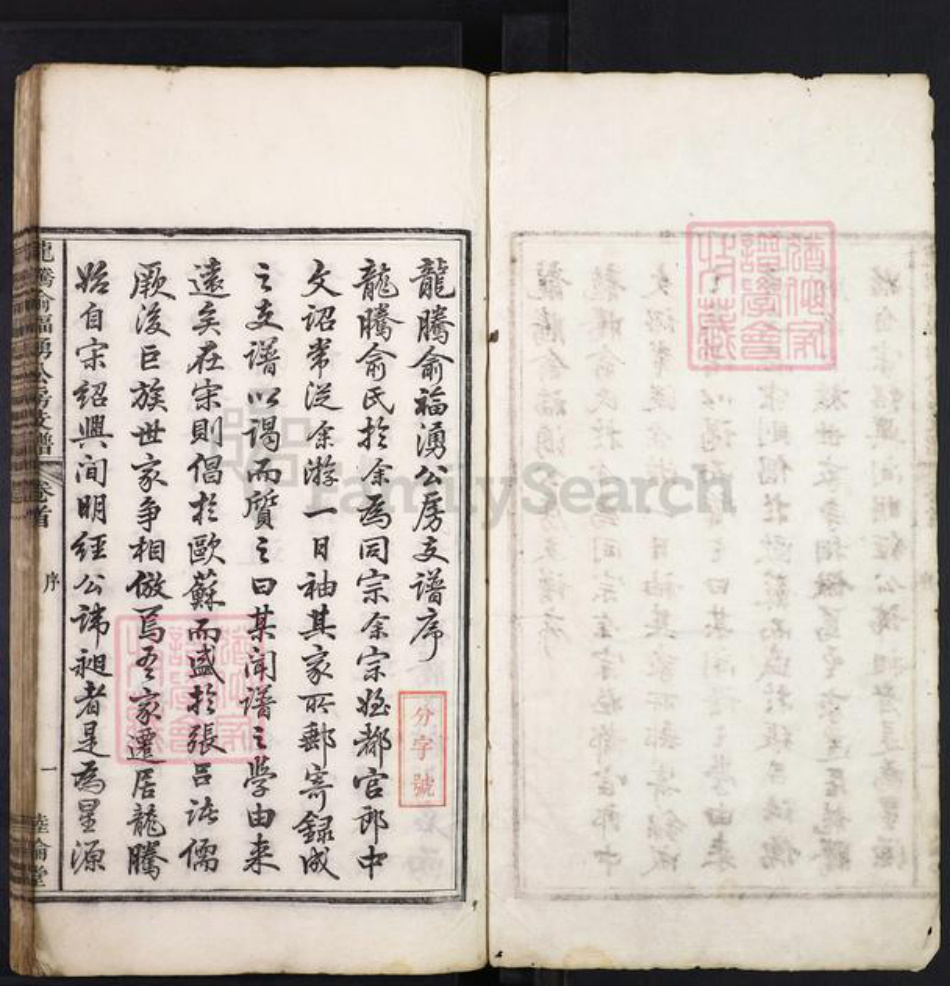 龍騰俞福湧公房支譜序
龍騰俞氏於余為同宗余宗姪都官郎中
文詔常從余游一日袖其家所郵寄錄成
之支譜以謁而質之曰某聞譜之學由来
遠矣在宋則倡於歐蘇而盛於張呂諸儒
厥後巨族世家爭相倣焉吾家遷居龍騰
始自宋紹興间明經公諱昶者是為星源
龍騰俞福湧公房支譜
卷首
序
一
敘倫堂
分字號
FamilySearch